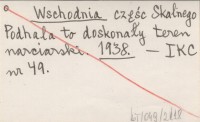 Wschodnia część Skalnego
Podhala to doskonały teren
narciarski. 1938. — IKC
nr 49.